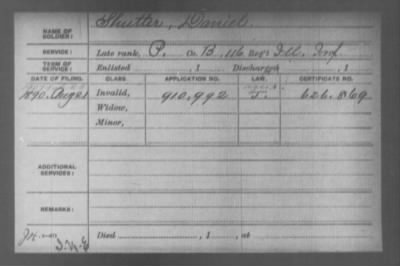 Shutler, Daniel
NAME OF SOLDIER:
SERVICE: Late rank, P. Co. B, 116 Reg't Ill. Inf
TERM OF SERVICE: Enlisted , 1 Discharged , 1
DATE OF FILING. CLASS APPLICATION NO. LAW. CERTIFICATE NO.
1890. Aug 21 Invalid, 910,992 J. 626.869
Widow,
Minor,
ADDITIONAL SERVICES:
REMARKS:
Died , 1 , at